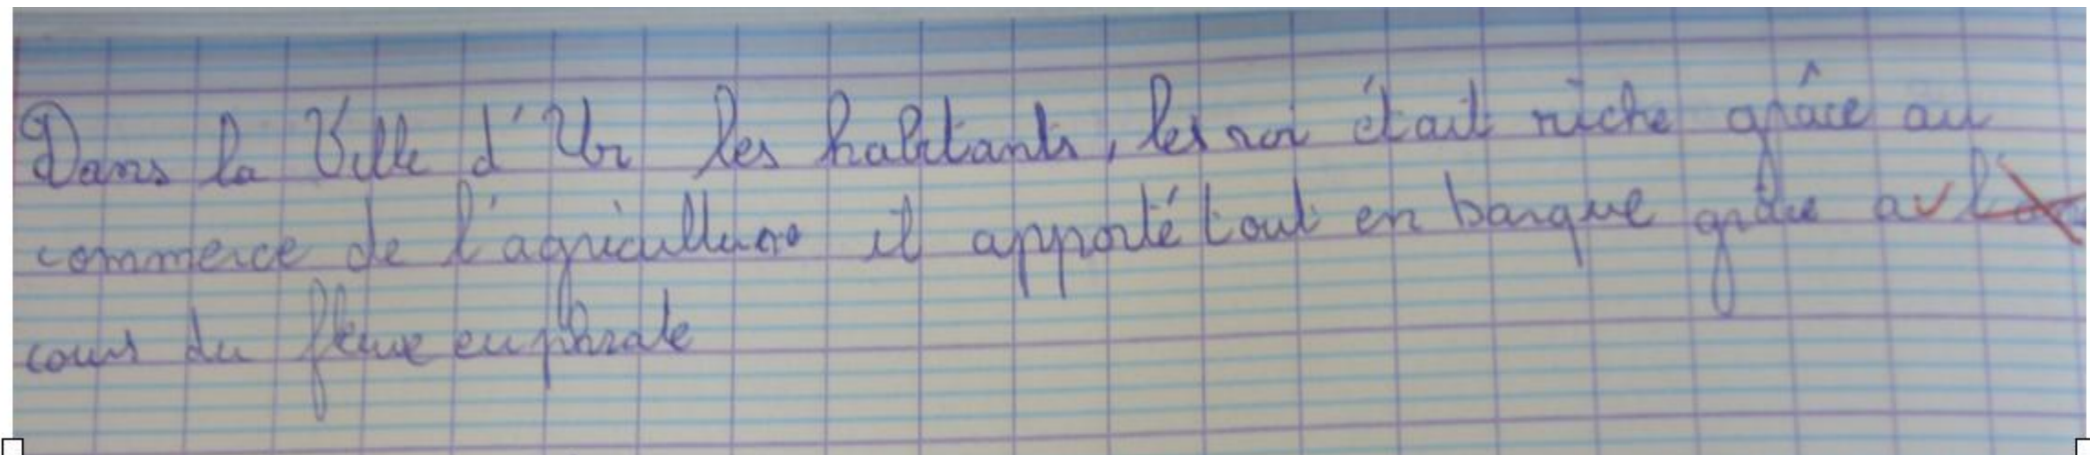 Dans la Ville d'Ur les habitants, les roi était riche grâce au
commerce de l'agriculture il apporté tout en barque grâce au
cours du fleuve euphrate